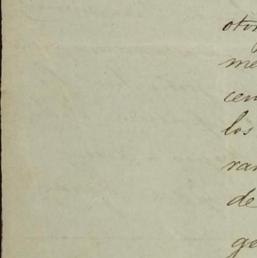 otr
me
cen
los
ran
de
ge